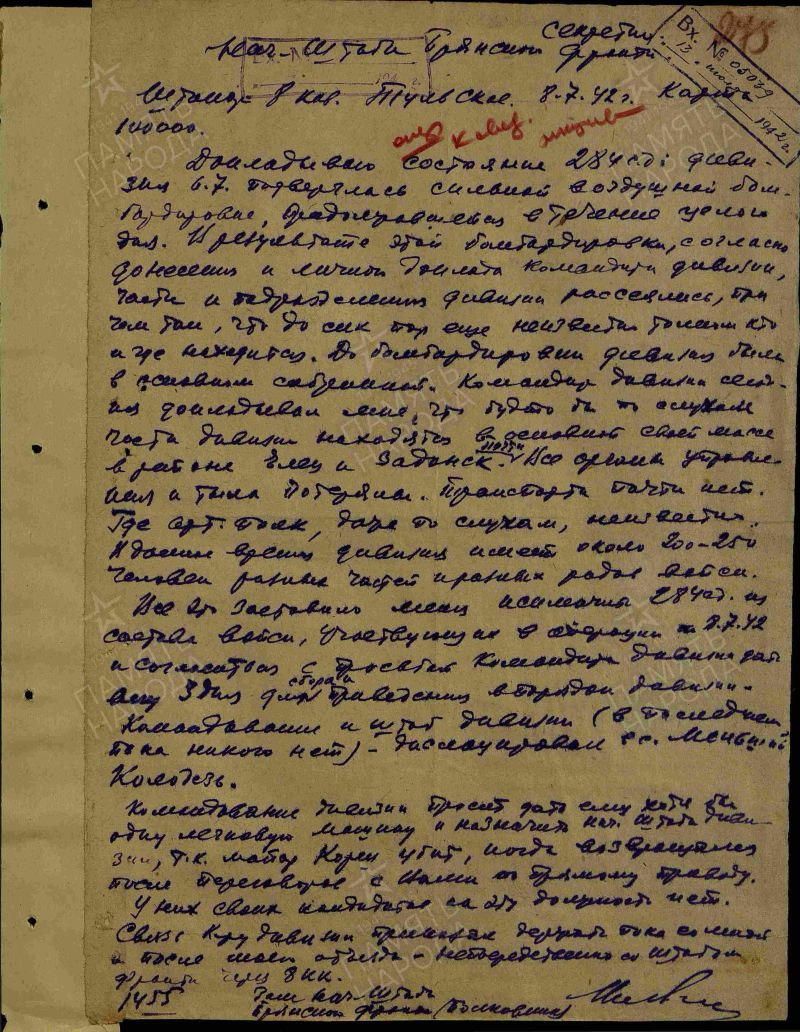 Секретно
Нач. Штаба Брянского фронта
Вх. № 05039
13 июля 1942 г.
245
Штакор 8 кав. Тульское. 8.7.42 г. Карта
100000.
Докладываю состояние 284 сд: диви-
зия 6.7. подверглась сильной воздушной бом-
бардировке, продолжавшейся в течение целого
дня. В результате этой бомбардировки, согласно
донесения и личного доклада командира дивизии,
части и подразделения дивизии рассеялись, при
чем так, что до сих пор еще неизвестно толком кто
и где находится. До бомбардировки дивизия была
в основном собранной. Командир дивизии сегод-
ня докладывал мне, что будто бы по слухам
части дивизии находятся в основной своей массе
в районе Елец и Задонск. Почти все органы управле-
ния и тыла потеряны. Транспорта почти нет.
Где арт. полк, даже по слухам, неизвестно.
В данное время дивизия имеет около 200-250
человек разных частей и разных родов войск.
Все это заставило меня исключить 284 сд. из
состава войск, участвующих в операции 8.7.42
и согласиться с просьбой командира дивизии дать
ему 3 дня для сбора и приведения в порядок дивизии.
Командование и штаб дивизии (в последнем
пока никого нет) - дислоцирован с. Меньшой
Колодезь.
Командование дивизии просит дать ему хотя бы
одну легковую машину и назначить нач. штаба диви-
зии, т.к. майор Корец убит, когда возвращался
после переговоров с Вами по прямому проводу.
У них своих кандидатов на эту должность нет.
Связь к-ру дивизии приказал держать пока со мной
и после моего отъезда - непосредственно со штабом
фронта через 8 кк.
1455
Зам нач. штаба
Брянского фронта (полковник)
ПАМЯТЬ
НАРОДА